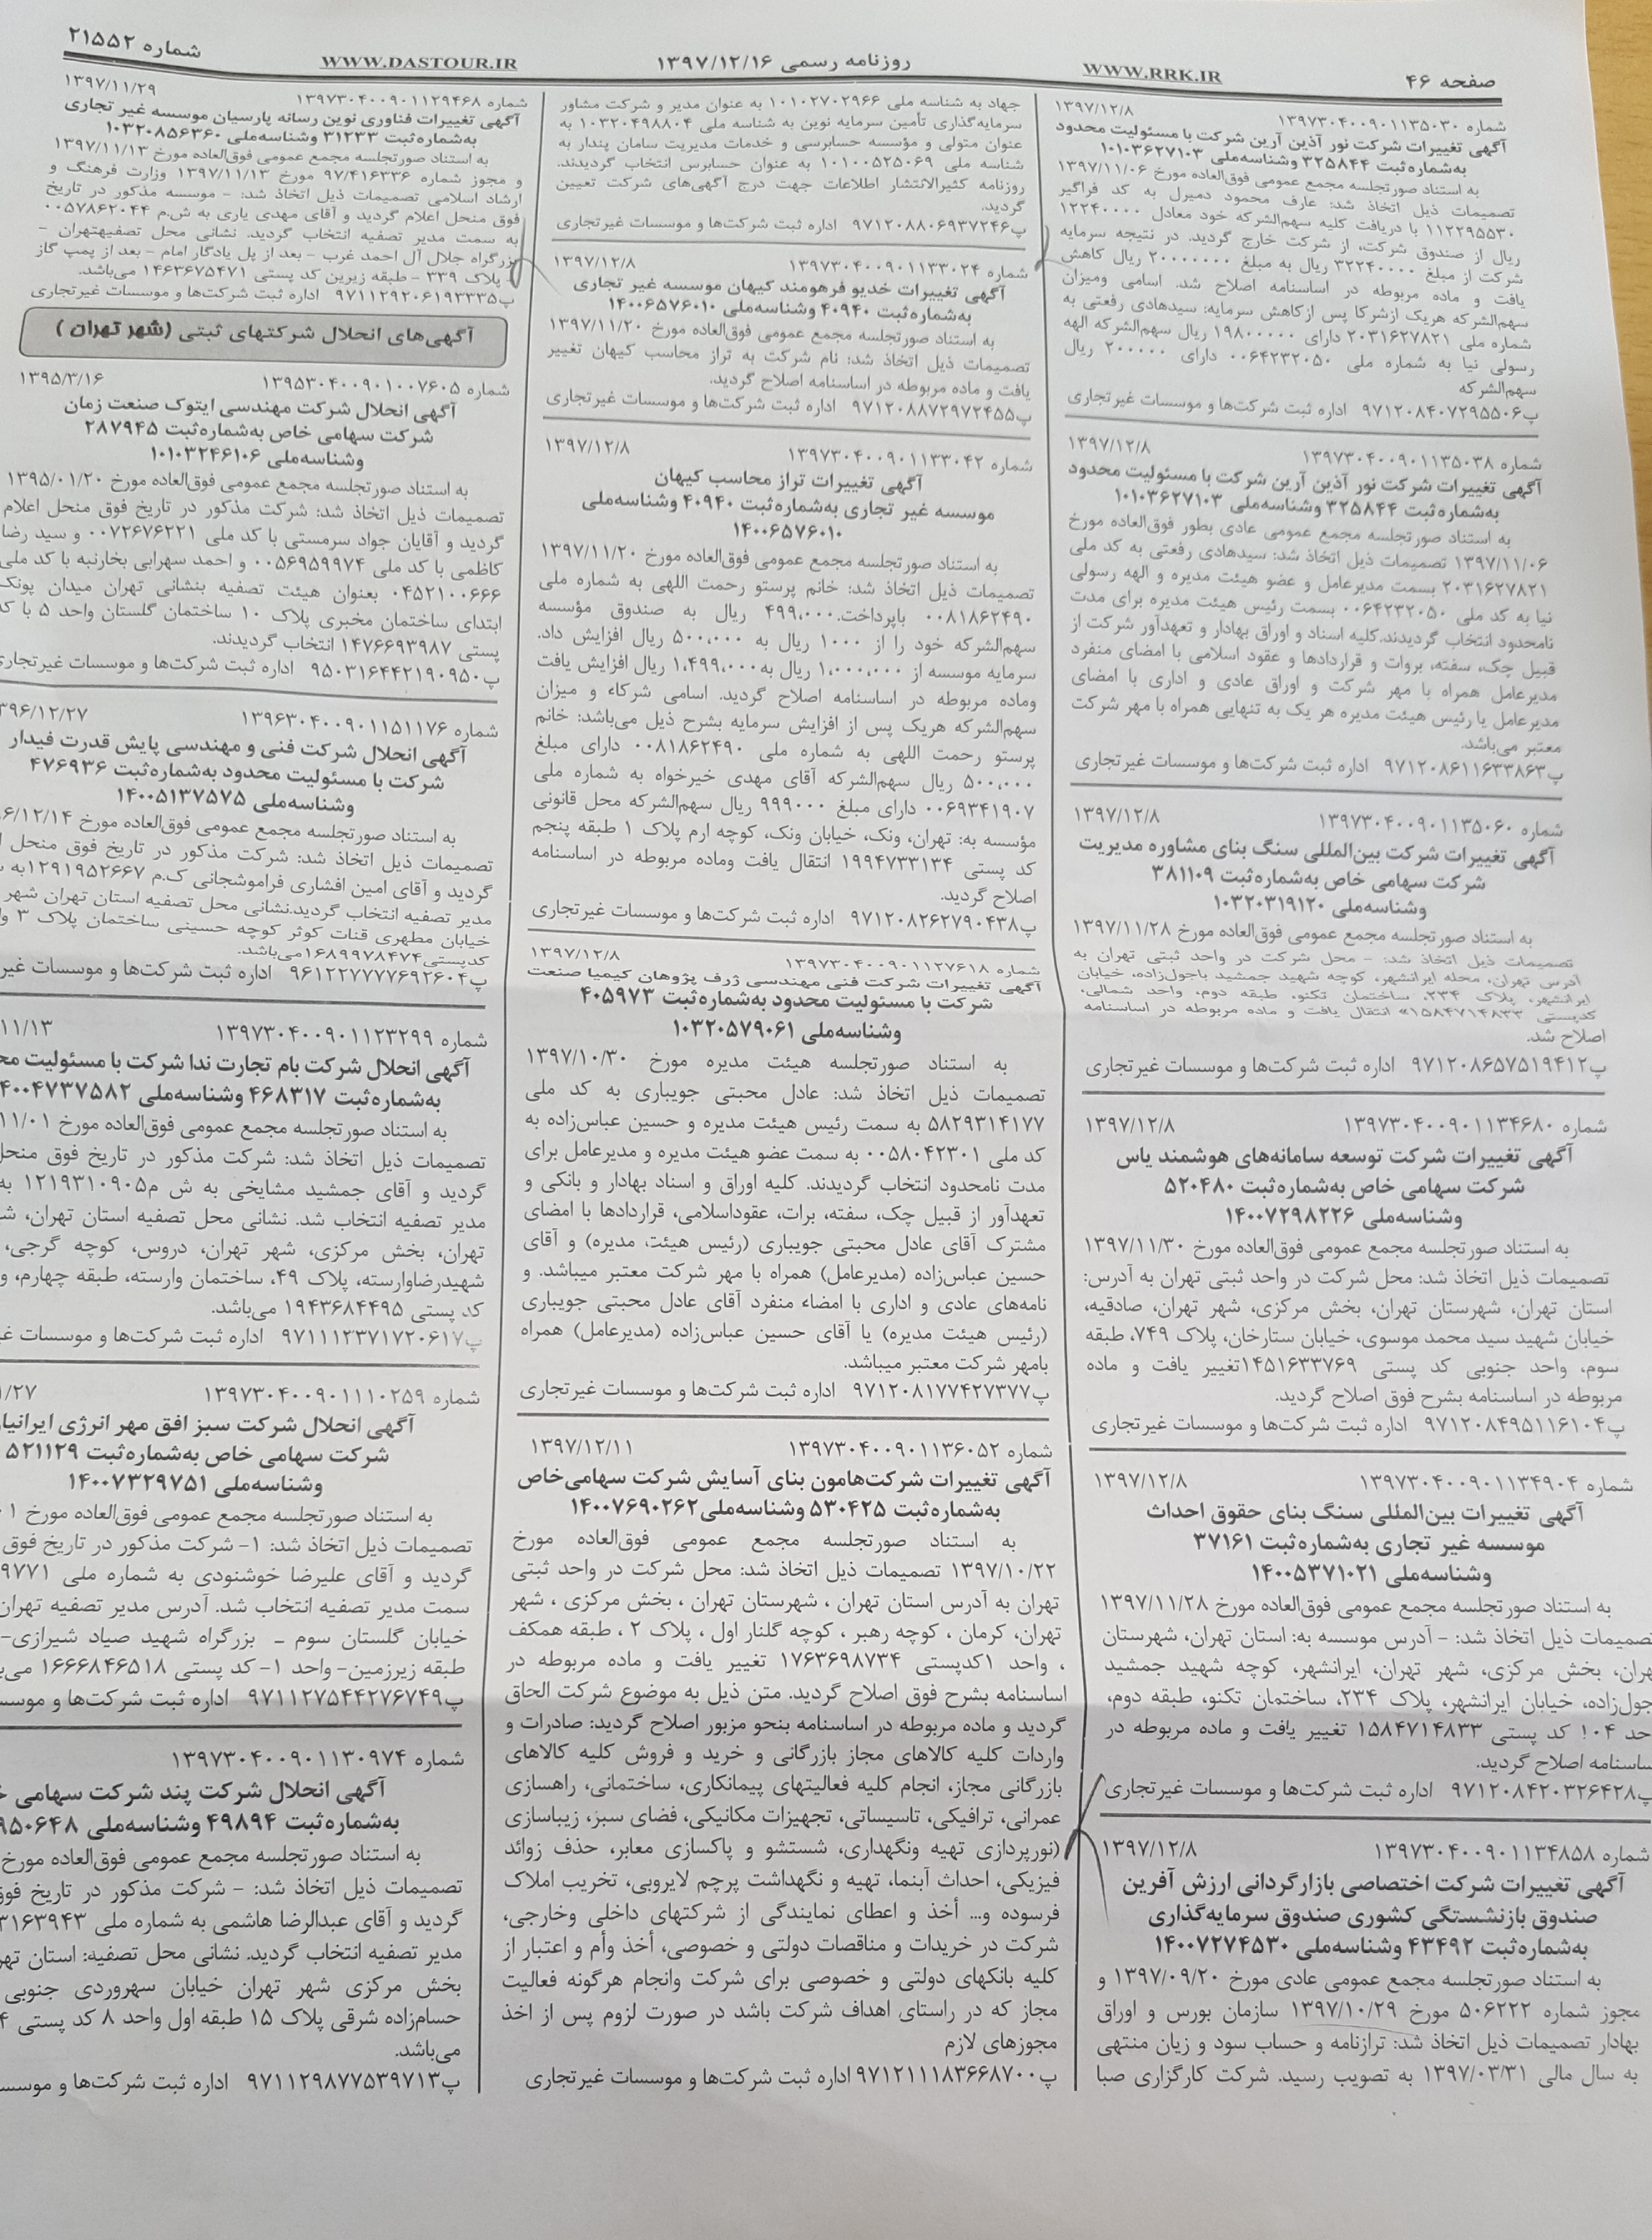 صفحه ۴۶
WWW.RRK.IR
روزنامه رسمی ۱۳۹۷/۱۲/۱۶
WWW.DASTOUR.IR
شماره ۲۱۵۵۲
شماره ۱۳۹۷۳۰۴۰۰۹۰۱۱۳۵۰۳۰ ۱۳۹۷/۱۲/۸
آگهی تغییرات شرکت نور آذین آرین شرکت با مسئولیت محدود
به‌شماره‌ثبت ۳۲۵۸۴۴ وشناسه‌ملی ۱۰۱۰۳۶۲۷۱۰۳
به استناد صورتجلسه مجمع عمومی فوق‌العاده مورخ ۱۳۹۷/۱۱/۰۶
تصمیمات ذیل اتخاذ شد: عارف محمود دمیرل به کد فراگیر
۱۱۲۲۹۵۵۳۰ با دریافت کلیه سهم‌الشرکه خود معادل ۱۲۲۴۰۰۰۰
ریال از صندوق شرکت، از شرکت خارج گردید. در نتیجه سرمایه
شرکت از مبلغ ۳۲۲۴۰۰۰۰ ریال به مبلغ ۲۰۰۰۰۰۰۰ ریال کاهش
یافت و ماده مربوطه در اساسنامه اصلاح شد. اسامی ومیزان
سهم‌الشرکه هریک ازشرکا پس ازکاهش سرمایه: سیدهادی رفعتی به
شماره ملی ۲۰۳۱۶۲۷۸۲۱ دارای ۱۹۸۰۰۰۰۰ ریال سهم‌الشرکه الهه
رسولی نیا به شماره ملی ۰۰۶۴۲۳۲۰۵۰ دارای ۲۰۰۰۰۰ ریال
سهم‌الشرکه
پ۹۷۱۲۰۸۴۰۷۲۹۵۵۰۶ اداره ثبت شرکت‌ها و موسسات غیرتجاری
شماره ۱۳۹۷۳۰۴۰۰۹۰۱۱۳۵۰۳۸ ۱۳۹۷/۱۲/۸
آگهی تغییرات شرکت نور آذین آرین شرکت با مسئولیت محدود
به‌شماره‌ثبت ۳۲۵۸۴۴ وشناسه‌ملی ۱۰۱۰۳۶۲۷۱۰۳
به استناد صورتجلسه مجمع عمومی عادی بطور فوق‌العاده مورخ
۱۳۹۷/۱۱/۰۶ تصمیمات ذیل اتخاذ شد: سیدهادی رفعتی به کد ملی
۲۰۳۱۶۲۷۸۲۱ بسمت مدیرعامل و عضو هیئت مدیره و الهه رسولی
نیا به کد ملی ۰۰۶۴۲۳۲۰۵۰ بسمت رئیس هیئت مدیره برای مدت
نامحدود انتخاب گردیدند.کلیه اسناد و اوراق بهادار و تعهدآور شرکت از
قبیل چک، سفته، بروات و قراردادها و عقود اسلامی با امضای منفرد
مدیرعامل همراه با مهر شرکت و اوراق عادی و اداری با امضای
مدیرعامل یا رئیس هیئت مدیره هر یک به تنهایی همراه با مهر شرکت
معتبر می‌باشد.
پ۹۷۱۲۰۸۶۱۱۶۳۳۸۶۳ اداره ثبت شرکت‌ها و موسسات غیرتجاری
شماره ۱۳۹۷۳۰۴۰۰۹۰۱۱۳۵۰۶۰ ۱۳۹۷/۱۲/۸
آگهی تغییرات شرکت بین‌المللی سنگ بنای مشاوره مدیریت
شرکت سهامی خاص به‌شماره‌ثبت ۳۸۱۱۰۹
وشناسه‌ملی ۱۰۳۲۰۳۱۹۱۲۰
به استناد صورتجلسه مجمع عمومی فوق‌العاده مورخ ۱۳۹۷/۱۱/۲۸
تصمیمات ذیل اتخاذ شد: - محل شرکت در واحد ثبتی تهران به
آدرس تهران، محله ایرانشهر، کوچه شهید جمشید باجول‌زاده، خیابان
ایرانشهر، پلاک ۲۳۴، ساختمان تکنو، طبقه دوم، واحد شمالی،
کدپستی ۱۵۸۴۷۱۴۸۳۳» انتقال یافت و ماده مربوطه در اساسنامه
اصلاح شد.
پ۹۷۱۲۰۸۶۵۷۵۱۹۴۱۲ اداره ثبت شرکت‌ها و موسسات غیرتجاری
شماره ۱۳۹۷۳۰۴۰۰۹۰۱۱۳۴۶۸۰ ۱۳۹۷/۱۲/۸
آگهی تغییرات شرکت توسعه سامانه‌های هوشمند یاس
شرکت سهامی خاص به‌شماره‌ثبت ۵۲۰۴۸۰
وشناسه‌ملی ۱۴۰۰۷۲۹۸۲۲۶
به استناد صورتجلسه مجمع عمومی فوق‌العاده مورخ ۱۳۹۷/۱۱/۳۰
تصمیمات ذیل اتخاذ شد: محل شرکت در واحد ثبتی تهران به آدرس:
استان تهران، شهرستان تهران، بخش مرکزی، شهر تهران، صادقیه،
خیابان شهید سید محمد موسوی، خیابان ستارخان، پلاک ۷۴۹، طبقه
سوم، واحد جنوبی کد پستی ۱۴۵۱۶۳۳۷۶۹تغییر یافت و ماده
مربوطه در اساسنامه بشرح فوق اصلاح گردید.
پ۹۷۱۲۰۸۴۹۵۱۱۶۱۰۴ اداره ثبت شرکت‌ها و موسسات غیرتجاری
شماره ۱۳۹۷۳۰۴۰۰۹۰۱۱۳۴۹۰۴ ۱۳۹۷/۱۲/۸
آگهی تغییرات بین‌المللی سنگ بنای حقوق احداث
موسسه غیر تجاری به‌شماره‌ثبت ۳۷۱۶۱
وشناسه‌ملی ۱۴۰۰۵۳۷۱۰۲۱
به استناد صورتجلسه مجمع عمومی فوق‌العاده مورخ ۱۳۹۷/۱۱/۲۸
تصمیمات ذیل اتخاذ شد: - آدرس موسسه به: استان تهران، شهرستان
هران، بخش مرکزی، شهر تهران، ایرانشهر، کوچه شهید جمشید
جول‌زاده، خیابان ایرانشهر، پلاک ۲۳۴، ساختمان تکنو، طبقه دوم،
حد ۱۰۴ کد پستی ۱۵۸۴۷۱۴۸۳۳ تغییر یافت و ماده مربوطه در
ساسنامه اصلاح گردید.
پ۹۷۱۲۰۸۴۲۰۳۲۶۴۲۸ اداره ثبت شرکت‌ها و موسسات غیرتجاری
شماره ۱۳۹۷۳۰۴۰۰۹۰۱۱۳۴۸۵۸ ۱۳۹۷/۱۲/۸
آگهی تغییرات شرکت اختصاصی بازارگردانی ارزش آفرین
صندوق بازنشستگی کشوری صندوق سرمایه‌گذاری
به‌شماره‌ثبت ۴۳۴۹۲ وشناسه‌ملی ۱۴۰۰۷۲۷۴۵۳۰
به استناد صورتجلسه مجمع عمومی عادی مورخ ۱۳۹۷/۰۹/۲۰ و
مجوز شماره ۵۰۶۲۲۲ مورخ ۱۳۹۷/۱۰/۲۹ سازمان بورس و اوراق
بهادار تصمیمات ذیل اتخاذ شد: ترازنامه و حساب سود و زیان منتهی
به سال مالی ۱۳۹۷/۰۳/۳۱ به تصویب رسید. شرکت کارگزاری صبا
جهاد به شناسه ملی ۱۰۱۰۲۷۰۲۹۶۶ به عنوان مدیر و شرکت مشاور
سرمایه‌گذاری تأمین سرمایه نوین به شناسه ملی ۱۰۳۲۰۴۹۸۸۰۴ به
عنوان متولی و مؤسسه حسابرسی و خدمات مدیریت سامان پندار به
شناسه ملی ۱۰۱۰۰۵۲۵۰۶۹ به عنوان حسابرس انتخاب گردیدند.
روزنامه کثیرالانتشار اطلاعات جهت درج آگهی‌های شرکت تعیین
گردید.
پ۹۷۱۲۰۸۸۰۶۹۳۷۲۴۶ اداره ثبت شرکت‌ها و موسسات غیرتجاری
شماره ۱۳۹۷۳۰۴۰۰۹۰۱۱۳۳۰۲۴ ۱۳۹۷/۱۲/۸
آگهی تغییرات خدیو فرهومند کیهان موسسه غیر تجاری
به‌شماره‌ثبت ۴۰۹۴۰ وشناسه‌ملی ۱۴۰۰۶۵۷۶۰۱۰
به استناد صورتجلسه مجمع عمومی فوق‌العاده مورخ ۱۳۹۷/۱۱/۲۰
تصمیمات ذیل اتخاذ شد: نام شرکت به تراز محاسب کیهان تغییر
یافت و ماده مربوطه در اساسنامه اصلاح گردید.
پ۹۷۱۲۰۸۸۷۲۹۷۲۴۵۵ اداره ثبت شرکت‌ها و موسسات غیرتجاری
شماره ۱۳۹۷۳۰۴۰۰۹۰۱۱۳۳۰۴۲ ۱۳۹۷/۱۲/۸
آگهی تغییرات تراز محاسب کیهان
موسسه غیر تجاری به‌شماره‌ثبت ۴۰۹۴۰ وشناسه‌ملی
۱۴۰۰۶۵۷۶۰۱۰
به استناد صورتجلسه مجمع عمومی فوق‌العاده مورخ ۱۳۹۷/۱۱/۲۰
تصمیمات ذیل اتخاذ شد: خانم پرستو رحمت اللهی به شماره ملی
۰۰۸۱۸۶۲۴۹۰ باپرداخت.۴۹۹,۰۰۰ ریال به صندوق مؤسسه
سهم‌الشرکه خود را از ۱۰۰۰ ریال به ۵۰۰,۰۰۰ ریال افزایش داد.
سرمایه موسسه از ۱,۰۰۰,۰۰۰ ریال به۱,۴۹۹,۰۰۰ ریال افزایش یافت
وماده مربوطه در اساسنامه اصلاح گردید. اسامی شرکاء و میزان
سهم‌الشرکه هریک پس از افزایش سرمایه بشرح ذیل می‌باشد: خانم
پرستو رحمت اللهی به شماره ملی ۰۰۸۱۸۶۲۴۹۰ دارای مبلغ
۵۰۰,۰۰۰ ریال سهم‌الشرکه آقای مهدی خیرخواه به شماره ملی
۰۰۶۹۳۴۱۹۰۷ دارای مبلغ ۹۹۹۰۰۰ ریال سهم‌الشرکه محل قانونی
مؤسسه به: تهران، ونک، خیابان ونک، کوچه ارم پلاک ۱ طبقه پنجم
کد پستی ۱۹۹۴۷۳۳۱۳۴ انتقال یافت وماده مربوطه در اساسنامه
اصلاح گردید.
پ۹۷۱۲۰۸۲۶۲۷۹۰۴۳۸ اداره ثبت شرکت‌ها و موسسات غیرتجاری
شماره ۱۳۹۷۳۰۴۰۰۹۰۱۱۲۷۶۱۸ ۱۳۹۷/۱۲/۸
آگهی تغییرات شرکت فنی مهندسی ژرف پژوهان کیمیا صنعت
شرکت با مسئولیت محدود به‌شماره‌ثبت ۴۰۵۹۷۳
وشناسه‌ملی ۱۰۳۲۰۵۷۹۰۶۱
به استناد صورتجلسه هیئت مدیره مورخ ۱۳۹۷/۱۰/۳۰
تصمیمات ذیل اتخاذ شد: عادل محبتی جویباری به کد ملی
۵۸۲۹۳۱۴۱۷۷ به سمت رئیس هیئت مدیره و حسین عباس‌زاده به
کد ملی ۰۰۵۸۰۴۲۳۰۱ به سمت عضو هیئت مدیره و مدیرعامل برای
مدت نامحدود انتخاب گردیدند. کلیه اوراق و اسناد بهادار و بانکی و
تعهدآور از قبیل چک، سفته، برات، عقوداسلامی، قراردادها با امضای
مشترک آقای عادل محبتی جویباری (رئیس هیئت مدیره) و آقای
حسین عباس‌زاده (مدیرعامل) همراه با مهر شرکت معتبر میباشد. و
نامه‌های عادی و اداری با امضاء منفرد آقای عادل محبتی جویباری
(رئیس هیئت مدیره) یا آقای حسین عباس‌زاده (مدیرعامل) همراه
بامهر شرکت معتبر میباشد.
پ۹۷۱۲۰۸۱۷۷۴۲۷۳۷۷ اداره ثبت شرکت‌ها و موسسات غیرتجاری
شماره ۱۳۹۷۳۰۴۰۰۹۰۱۱۳۶۰۵۲ ۱۳۹۷/۱۲/۱۱
آگهی تغییرات شرکت‌هامون بنای آسایش شرکت سهامی‌خاص
به‌شماره‌ثبت ۵۳۰۴۲۵ وشناسه‌ملی۱۴۰۰۷۶۹۰۲۶۲
به استناد صورتجلسه مجمع عمومی فوق‌العاده مورخ
۱۳۹۷/۱۰/۲۲ تصمیمات ذیل اتخاذ شد: محل شرکت در واحد ثبتی
تهران به آدرس استان تهران ، شهرستان تهران ، بخش مرکزی ، شهر
تهران، کرمان ، کوچه رهبر ، کوچه گلنار اول ، پلاک ۲ ، طبقه همکف
، واحد ۱کدپستی ۱۷۶۳۶۹۸۷۳۴ تغییر یافت و ماده مربوطه در
اساسنامه بشرح فوق اصلاح گردید. متن ذیل به موضوع شرکت الحاق
گردید و ماده مربوطه در اساسنامه بنحو مزبور اصلاح گردید: صادرات و
واردات کلیه کالاهای مجاز بازرگانی و خرید و فروش کلیه کالاهای
بازرگانی مجاز، انجام کلیه فعالیتهای پیمانکاری، ساختمانی، راهسازی
عمرانی، ترافیکی، تاسیساتی، تجهیزات مکانیکی، فضای سبز، زیباسازی
(نورپردازی تهیه ونگهداری، شستشو و پاکسازی معابر، حذف زوائد
فیزیکی، احداث آبنما، تهیه و نگهداشت پرچم لایروبی، تخریب املاک
فرسوده و... أخذ و اعطای نمایندگی از شرکتهای داخلی وخارجی،
شرکت در خریدات و مناقصات دولتی و خصوصی، أخذ وأم و اعتبار از
کلیه بانکهای دولتی و خصوصی برای شرکت وانجام هرگونه فعالیت
مجاز که در راستای اهداف شرکت باشد در صورت لزوم پس از اخذ
مجوزهای لازم
پ۹۷۱۲۱۱۱۸۳۶۶۸۷۰۰ اداره ثبت شرکت‌ها و موسسات غیرتجاری
شماره ۱۳۹۷۳۰۴۰۰۹۰۱۱۲۹۴۶۸ ۱۳۹۷/۱۱/۲۹
آگهی تغییرات فناوری نوین رسانه پارسیان موسسه غیر تجاری
به‌شماره‌ثبت ۳۱۲۳۳ وشناسه‌ملی ۱۰۳۲۰۸۵۶۳۶۰
به استناد صورتجلسه مجمع عمومی فوق‌العاده مورخ ۱۳۹۷/۱۱/۱۳
و مجوز شماره ۹۷/۴۱۶۳۳۶ مورخ ۱۳۹۷/۱۱/۱۳ وزارت فرهنگ و
ارشاد اسلامی تصمیمات ذیل اتخاذ شد: - موسسه مذکور در تاریخ
فوق منحل اعلام گردید و آقای مهدی یاری به ش.م ۰۰۵۷۸۶۲۰۴۴
به سمت مدیر تصفیه انتخاب گردید. نشانی محل تصفیهتهران -
بزرگراه جلال آل احمد غرب - بعد از پل یادگار امام - بعد از پمپ گاز
- پلاک ۳۳۹ - طبقه زیرین کد پستی ۱۴۶۳۶۷۵۴۷۱ می‌باشد.
پ۹۷۱۱۲۹۲۰۶۱۹۳۳۳۵ اداره ثبت شرکت‌ها و موسسات غیرتجاری
آگهی‌های انحلال شرکتهای ثبتی (شهر تهران )
شماره ۱۳۹۵۳۰۴۰۰۹۰۱۰۰۷۶۰۵ ۱۳۹۵/۳/۱۶
آگهی انحلال شرکت مهندسی ایتوک صنعت زمان
شرکت سهامی خاص به‌شماره‌ثبت ۲۸۷۹۴۵
وشناسه‌ملی ۱۰۱۰۳۲۴۶۱۰۶
به استناد صورتجلسه مجمع عمومی فوق‌العاده مورخ ۱۳۹۵/۰۱/۲۰
تصمیمات ذیل اتخاذ شد: شرکت مذکور در تاریخ فوق منحل اعلام
گردید و آقایان جواد سرمستی با کد ملی ۰۰۷۲۶۷۶۲۲۱ و سید رضا
کاظمی با کد ملی ۰۰۵۶۹۵۹۹۷۴ و احمد سهرابی بخارنیه با کد ملی
۰۴۵۲۱۰۰۶۶۶ بعنوان هیئت تصفیه بنشانی تهران میدان پونک
ابتدای ساختمان مخبری پلاک ۱۰ ساختمان گلستان واحد ۵ با کد
پستی ۱۴۷۶۶۹۳۹۸۷ انتخاب گردیدند.
پ۹۵۰۳۱۶۴۴۲۱۹۰۹۵۰ اداره ثبت شرکت‌ها و موسسات غیرتجاری
شماره ۱۳۹۶۳۰۴۰۰۹۰۱۱۵۱۱۷۶ ۳۹۶/۱۲/۲۷
آگهی انحلال شرکت فنی و مهندسی پایش قدرت فیدار
شرکت با مسئولیت محدود به‌شماره‌ثبت ۴۷۶۹۳۶
وشناسه‌ملی ۱۴۰۰۵۱۳۷۵۷۵
به استناد صورتجلسه مجمع عمومی فوق‌العاده مورخ ۶/۱۲/۱۴
تصمیمات ذیل اتخاذ شد: شرکت مذکور در تاریخ فوق منحل
گردید و آقای امین افشاری فراموشجانی ک.م ۱۲۹۱۹۵۲۶۶۷به
مدیر تصفیه انتخاب گردید.نشانی محل تصفیه استان تهران شهر
خیابان مطهری قنات کوثر کوچه حسینی ساختمان پلاک ۳
کدپستی۱۶۸۹۹۷۸۴۷۴می‌باشد.
پ۹۶۱۲۲۷۷۷۷۶۹۲۶۰۴ اداره ثبت شرکت‌ها و موسسات غیر
شماره ۱۳۹۷۳۰۴۰۰۹۰۱۱۲۳۲۹۹ ۱۱/۱۳
آگهی انحلال شرکت بام تجارت ندا شرکت با مسئولیت مح
به‌شماره‌ثبت ۴۶۸۳۱۷ وشناسه‌ملی ۴۰۰۴۷۳۷۵۸۲
به استناد صورتجلسه مجمع عمومی فوق‌العاده مورخ ۱۱/۰۱
تصمیمات ذیل اتخاذ شد: شرکت مذکور در تاریخ فوق منحل
گردید و آقای جمشید مشایخی به ش م۱۲۱۹۳۱۰۹۰۵ به
مدیر تصفیه انتخاب شد. نشانی محل تصفیه استان تهران،
تهران، بخش مرکزی، شهر تهران، دروس، کوچه گرجی،
شهیدرضاوارسته، پلاک ۴۹، ساختمان وارسته، طبقه چهارم، و
کد پستی ۱۹۴۳۶۸۴۴۹۵ می‌باشد.
پ۹۷۱۱۱۲۳۷۱۷۲۰۶۱۷ اداره ثبت شرکت‌ها و موسسات غی
شماره ۱۳۹۷۳۰۴۰۰۹۰۱۱۱۰۲۵۹ ۱/۲۷
آگهی انحلال شرکت سبز افق مهر انرژی ایرانیا
شرکت سهامی خاص به‌شماره‌ثبت ۵۲۱۱۲۹
وشناسه‌ملی ۱۴۰۰۷۳۲۹۷۵۱
به استناد صورتجلسه مجمع عمومی فوق‌العاده مورخ ۰۱
تصمیمات ذیل اتخاذ شد: ۱- شرکت مذکور در تاریخ فوق
گردید و آقای علیرضا خوشنودی به شماره ملی ۹۷۷۱
سمت مدیر تصفیه انتخاب شد. آدرس مدیر تصفیه تهران
خیابان گلستان سوم ـ بزرگراه شهید صیاد شیرازی-
طبقه زیرزمین- واحد ۱- کد پستی ۱۶۶۶۸۴۶۵۱۸ می‌ب
پ۹۷۱۱۲۷۵۴۴۲۷۶۷۴۹ اداره ثبت شرکت‌ها و موسس
شماره ۱۳۹۷۳۰۴۰۰۹۰۱۱۳۰۹۷۴
آگهی انحلال شرکت پند شرکت سهامی
به‌شماره‌ثبت ۴۹۸۹۴ وشناسه‌ملی ۹۵۰۶۴۸
به استناد صورتجلسه مجمع عمومی فوق‌العاده مورخ
تصمیمات ذیل اتخاذ شد: - شرکت مذکور در تاریخ فوق
گردید و آقای عبدالرضا هاشمی به شماره ملی ۳۱۶۳۹۴۳
مدیر تصفیه انتخاب گردید. نشانی محل تصفیه: استان تهر
بخش مرکزی شهر تهران خیابان سهروردی جنوبی
حسام‌زاده شرقی پلاک ۱۵ طبقه اول واحد ۸ کد پستی ۴
می‌باشد.
پ۹۷۱۱۲۹۸۷۷۵۳۹۷۱۳ اداره ثبت شرکت‌ها و موسس